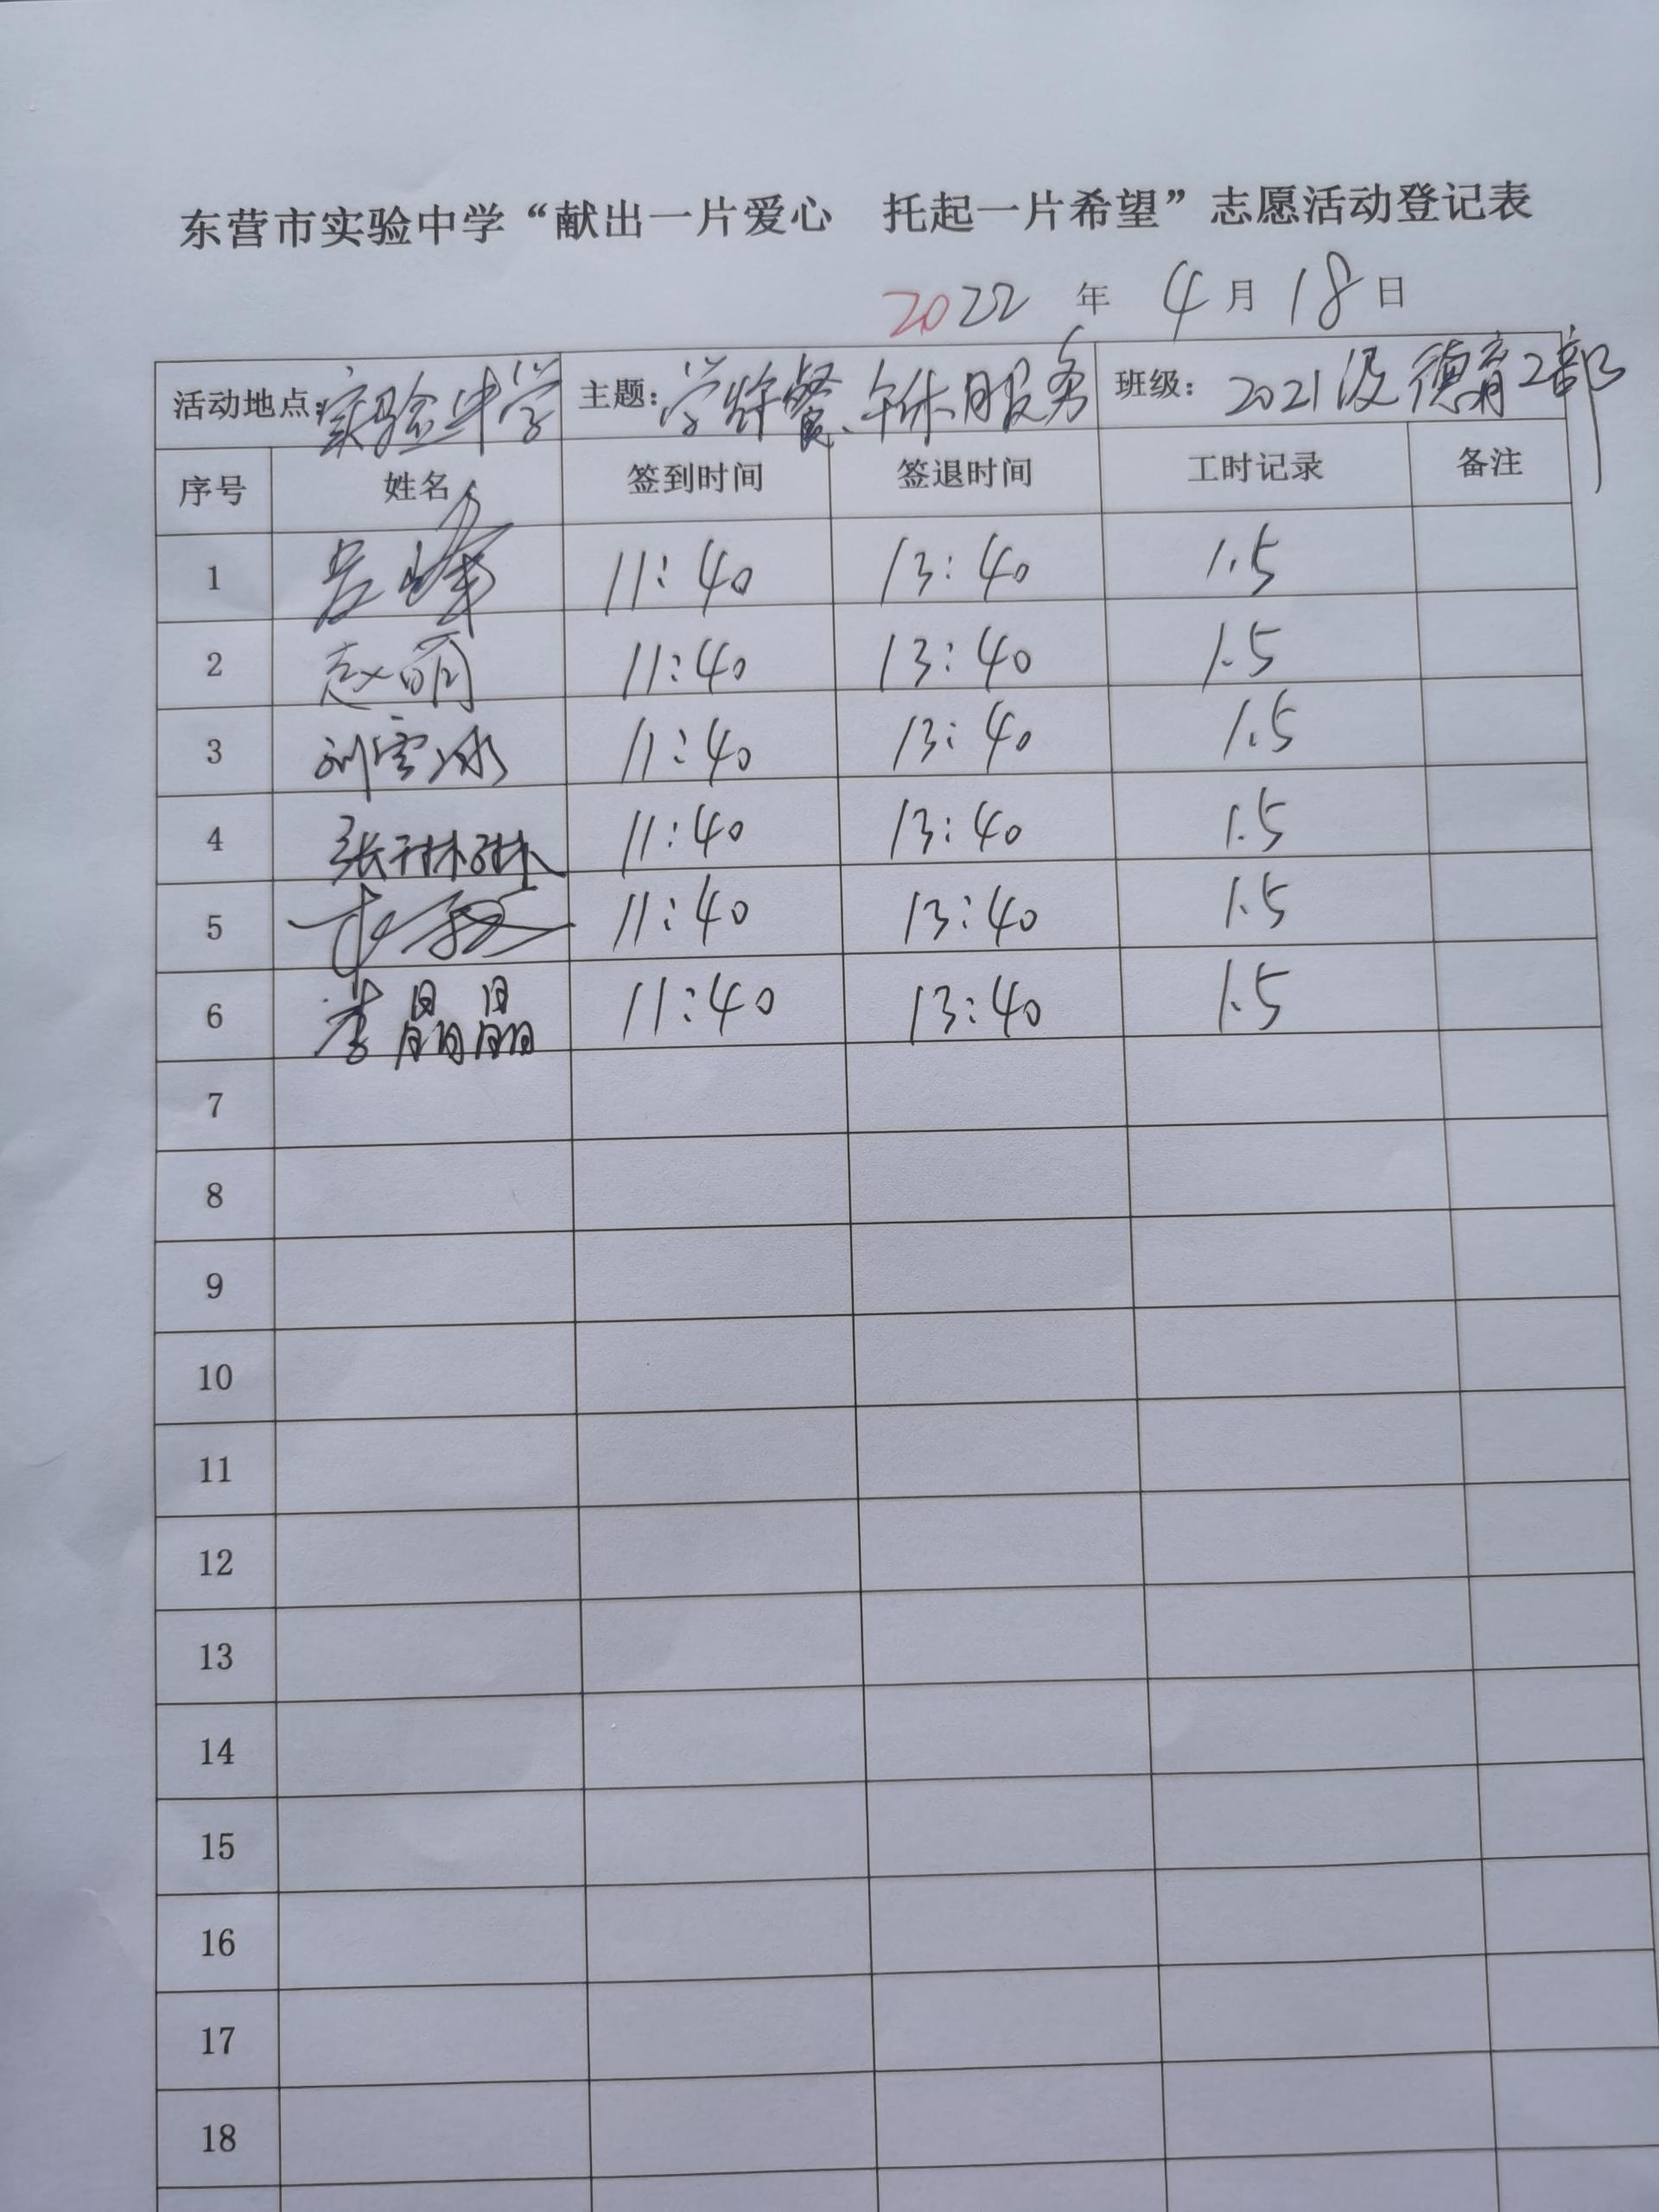 东营市实验中学“献出一片爱心 托起一片希望”志愿活动登记表
2022 年 4 月 18 日
活动地点:实验中学 主题:学生餐、午休服务 班级:2021级德育2部
序号 姓名 签到时间 签退时间 工时记录 备注
1 吕峰 11:40 13:40 1.5
2 赵萌 11:40 13:40 1.5
3 刘雪冰 11:40 13:40 1.5
4 张琳琳 11:40 13:40 1.5
5 11:40 13:40 1.5
6 李晶晶 11:40 13:40 1.5
7
8
9
10
11
12
13
14
15
16
17
18